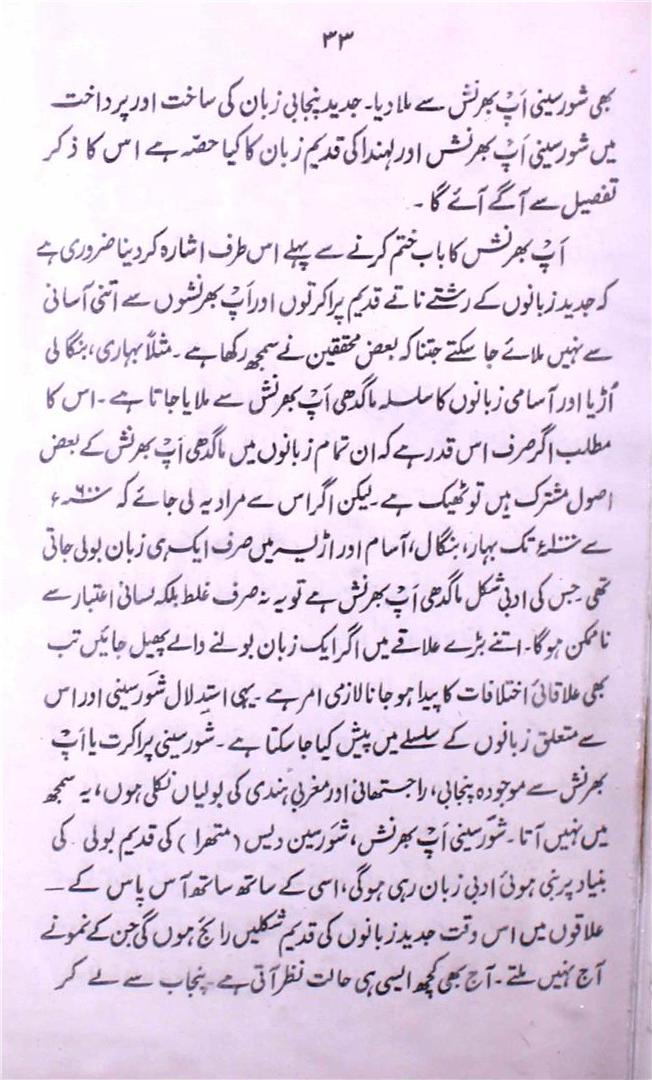 ۳۳
بھی شورسینی اَپ بھرنش سے ملا دیا۔ جدید پنجابی زبان کی ساخت اور پرداخت
میں شورسینی اَپ بھرنش اور لہندا کی قدیم زبان کا کیا حصّہ ہے اس کا ذکر
تفصیل سے آگے آئے گا ۔
اَپ بھرنش کا باب ختم کرنے سے پہلے اس طرف اشارہ کر دینا ضروری ہے
کہ جدید زبانوں کے رشتے ناتے قدیم پراکرتوں اور اَپ بھرنشوں سے اتنی آسانی
سے نہیں ملائے جا سکتے جتنا کہ بعض محققین نے سمجھ رکھا ہے ۔ مثلاً بہاری، بنگالی
اُڑیا اور آسامی زبانوں کا سلسلہ ماگدھی اَپ بھرنش سے ملایا جاتا ہے ۔ اس کا
مطلب اگر صرف اس قدر ہے کہ ان تمام زبانوں میں ماگدھی اَپ بھرنش کے بعض
اصول مشترک ہیں تو ٹھیک ہے ۔ لیکن اگر اس سے مراد یہ لی جائے کہ ۶۰۰ء
سے ۱۰۰۰ء تک بہار، بنگال، آسام اور اڑیسہ میں صرف ایک ہی زبان بولی جاتی
تھی جس کی ادبی شکل ماگدھی اَپ بھرنش ہے تو یہ نہ صرف غلط بلکہ لسانی اعتبار سے
ناممکن ہوگا۔ اتنے بڑے علاقے میں اگر ایک زبان بولنے والے پھیل جائیں تب
بھی علاقائی اختلافات کا پیدا ہو جانا لازمی امر ہے ۔ یہی استدلال شَورسینی اور اس
سے متعلق زبانوں کے سلسلے میں پیش کیا جا سکتا ہے ۔ شورسینی پراکرت یا اَپ
بھرنش سے موجودہ پنجابی، راجستھانی اور مغربی ہندی کی بولیاں نکلی ہوں، یہ سمجھ
میں نہیں آتا ۔ شَورسینی اَپ بھرنش، شَورسین دیس (متھرا) کی قدیم بولی کی
بنیاد پر بنی ہوئی ادبی زبان رہی ہوگی، اسی کے ساتھ ساتھ آس پاس کے —
علاقوں میں اس وقت جدید زبانوں کی قدیم شکلیں رائج ہوں گی جن کے نمونے
آج نہیں ملتے ۔ آج بھی کچھ ایسی ہی حالت نظر آتی ہے۔ پنجاب سے لے کر